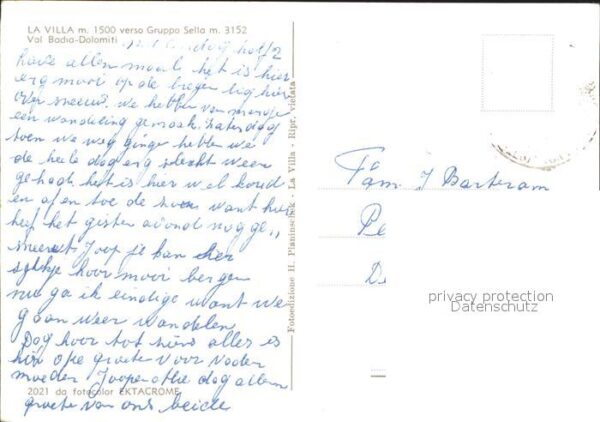 LA VILLA m. 1500 verso Gruppo Sella m. 3152
Val Badia-Dolomiti
half 2
allen het is hier
erg mooi op de bergen lig hier
over sneeuw. We hebben van morge
een wandeling gemaak. Zaterdag
toen we weg ginge hebben we
de heele dag erg slecht weer
gehad het is hier wel koud
en af en toe de zon want hier
heef het gister avond nog ge,,
sneeuwt Joop je kan hier
hoor mooi bergen
nu ga ik eindige want we
gaan weer wandelen
Dag hoor tot ziens alles is
hier oke groete voor Vader
moeder Joop dag allem
groete van ons beide
2021 da fotocolor EKTACROME
Fotoedizione H. Planinschek - La Villa - Ripr. vietata
Fam J Barteram
Pe
D
privacy protection
Datenschutz